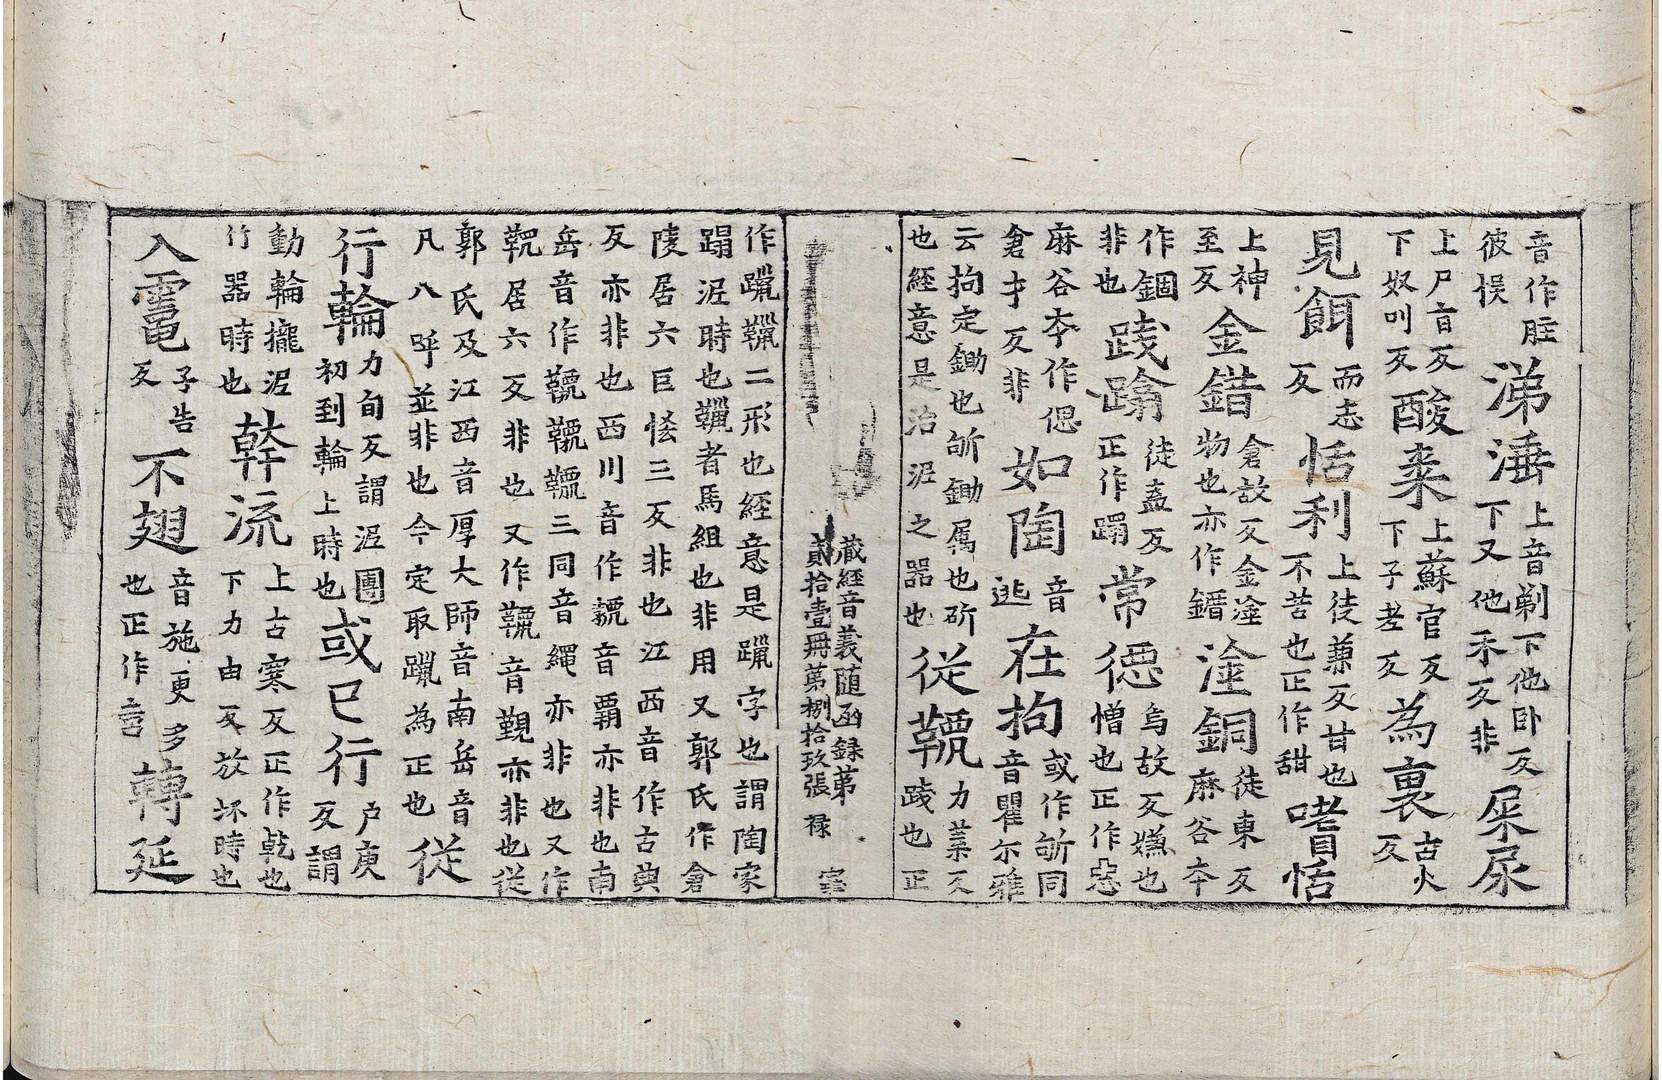 音作㽵彼悮涕涶上音剃下他卧反下又他禾反非屎尿
上尸旨反下奴叫反酸来上蘇官反下子老反為裏古火反
見餌而志反恬利上徒兼反甘也不苦也正作甜嗜恬
上神至反金錯倉故反金淦物也亦作鐕淦銅徒東反麻谷夲
作錮非也踐蹹徒盍反正作蹋常㥁烏故反嫌也憎也正作惡
麻谷夲作偲倉才反非如陶音逃在拘或作斪同音瞿尔雅
云拘定鋤也斪鋤属也斫也經意是治泥之器也従力葉反踐也正
藏經音義随函録第貳拾壹冊第捌拾玖張 禄 室
作躐二形也經意是躐字也謂陶家
蹋泥時也者馬組也非用又郭氏作倉
陵居六巨恠三反非也江西音作古典
反亦非也西川音作音霸亦非也南
岳音作三同音縄亦非也又作
居六反非也又作音覲亦非也従
郭氏及江西音厚大師音南岳音
凡八呼並非也今定取躐為正也従
行輪力旬反謂泥團初到輪上時也或已行户庚反謂
動輪攏泥竹器時也幹流上古寒反正作乾也下力由反放坏時也
入竈子告反不翅音施更多也正作啻轉延